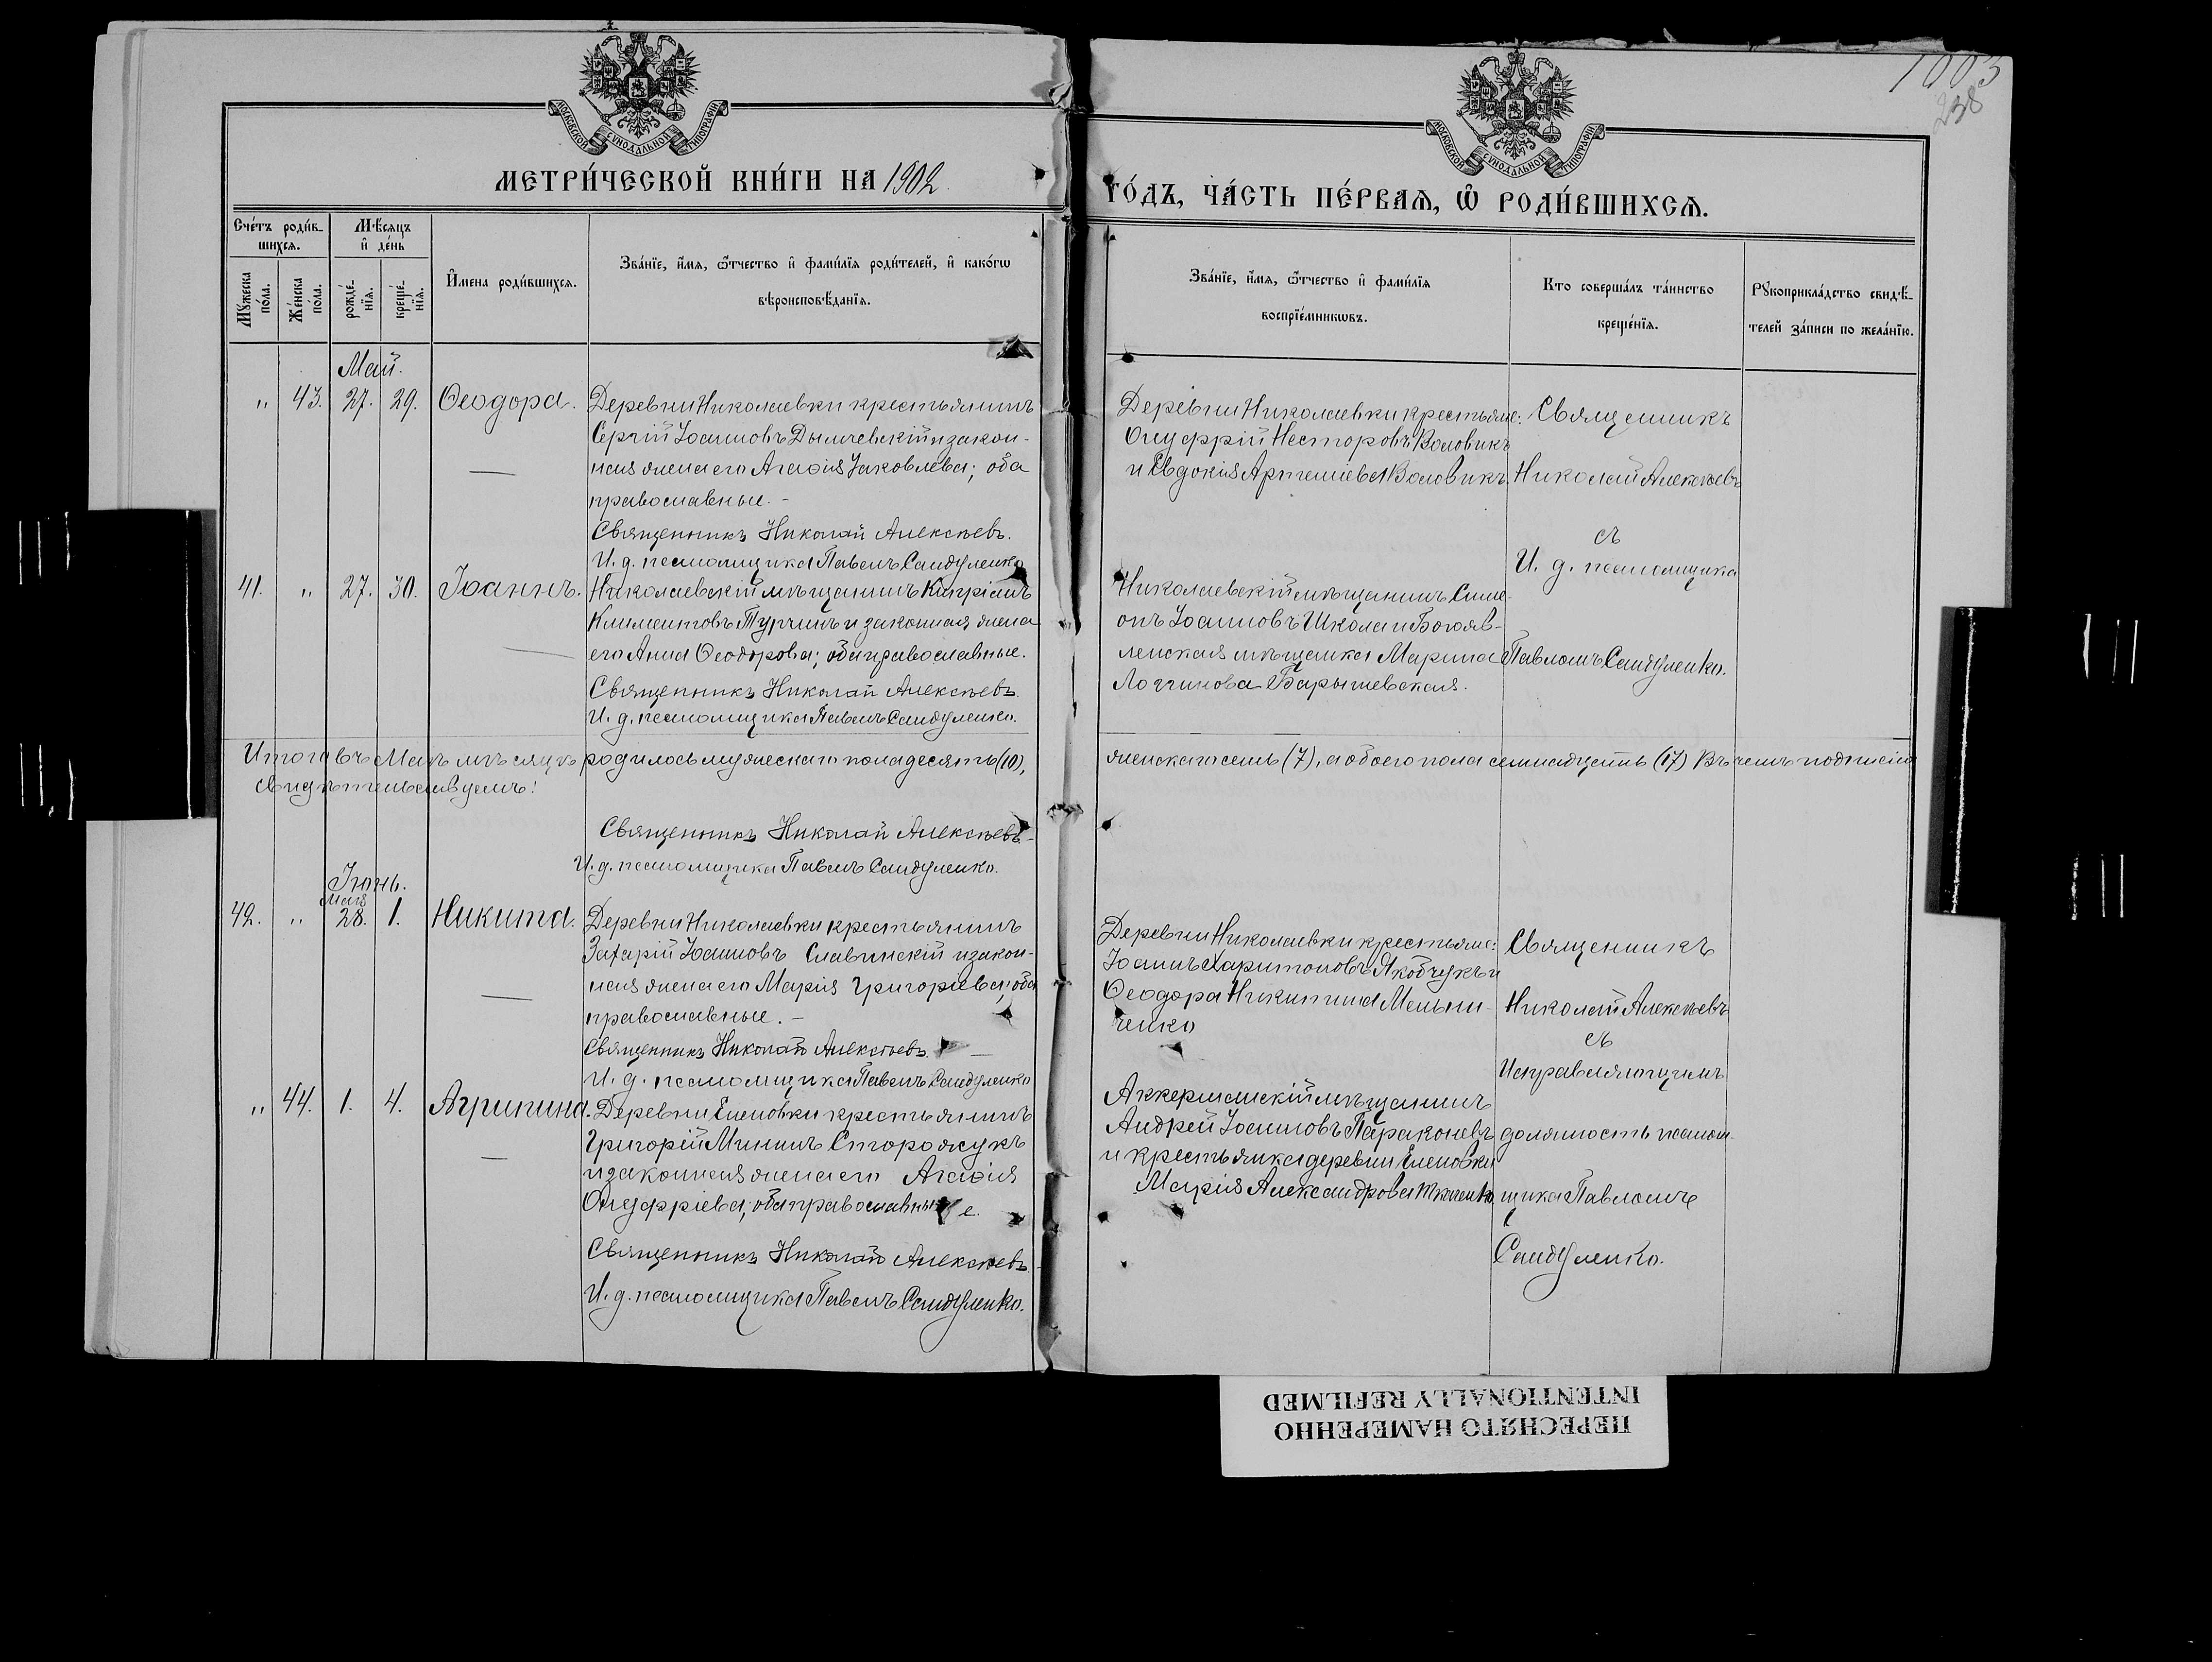 1003
238
МОСКОВСКОЙ СУНОДАЛЬНОЙ ТИПОГРАФІИ
МОСКОВСКОЙ СУНОДАЛЬНОЙ ТИПОГРАФІИ
МЕТРИ́ЧЕСКОЙ КНИ́ГИ НА 1902
ГО́ДЪ, ЧА́СТЬ ПЕ́РВАѦ, Ѽ РОДИ́ВШИХСѦ.
Сче́тъ роди́в-
шихсѧ.
Мѣ́сѧцъ
и҆ де́нь
Мꙋ́жеска
по́ла.
Же́нска
по́ла.
рожде́-
нїѧ.
креще́-
нїѧ.
И҆мена роди́вшихсѧ.
Зва́нїе, и҆́мѧ, ѻ҆́тчество и҆ фами́лїѧ роди́телей, и҆ како́гѡ
вѣроисповѣ́данїѧ.
Зва́нїе, и҆́мѧ, ѻ҆́тчество и҆ фами́лїѧ
воспрїе́мникѡвъ.
Кто соверша́лъ та́инство
креще́нїѧ.
Рꙋкоприкла́дство свидѣ́-
телей за́писи по жела́нїю.
Май.
" 43. 27. 29. Ѳеодора.
Деревни Николаевки крестьянинъ
Сергій Іоанновъ Дымчевскій и закон-
ная жена его Агаѳія Іаковлева; оба
православные. -
Священникъ Николай Алексѣевъ.
И. д. псаломщика Павелъ Сандуленко
Деревни Николаевки крестьяне:
Онуфрій Несторовъ Воловикъ
и Евдокія Артеміева Воловикъ.
Священникъ
Николай Алексѣевъ
съ
И. д. псаломщика
Павломъ Сандуленко.
41. " 27. 30. Іоаннъ.
Николаевскій мѣщанинъ Кипріанъ
Климентовъ Турчинъ и законная жена
его Анна Ѳеодорова; оба православные.
Священникъ Николай Алексѣевъ.
И. д. псаломщика Павелъ Сандуленко.
Николаевскій мѣщанинъ Симе-
онъ Іоанновъ Школа и Богояв-
ленская мѣщанка Марина
Логгинова Барышевская.
Итого въ Маѣ мѣсяцѣ родилось мужескаго пола десять (10), женскаго семь (7), а обоего пола семнадцать (17) Въ чемъ подписью
свидѣтельствуемъ:
Священникъ Николай Алексѣевъ
И. д. псаломщика Павелъ Сандуленко.
Іюнь.
мая
42. " 28. 1. Никита.
Деревни Николаевки крестьянинъ
Захарій Іоанновъ Славинскій и закон-
ная жена его Марія Григорьева; оба
православные. -
Священникъ Николай Алексѣевъ.
И. д. псаломщика Павелъ Сандуленко
Деревни Николаевки крестьяне:
Іоаннъ Харитоновъ Якобчукъ и
Ѳеодора Никитина Мельни-
ченко
Священникъ
Николай Алексѣевъ
съ
Исправляющимъ
должность псалом-
щика Павломъ
Сандуленко.
" 44. 1. 4. Агрипина.
Деревни Еленовки крестьянинъ
Григорій Мининъ Сторожукъ
и законная жена его Агаѳія
Онуфріева; оба православные.
Священникъ Николай Алексѣевъ.
И. д. псаломщика Павелъ Сандуленко.
Аккерманскій мѣщанинъ
Андрей Іоанновъ Параконевъ
и крестьянка деревни Еленовки
Марія Александрова Ткаченко
ПЕРЕСНЯТО НАМЕРЕННО
INTENTIONALLY REFILMED